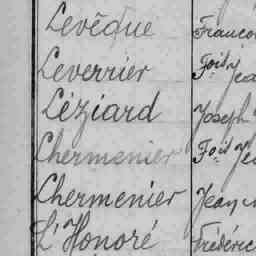 Levêque Franco
Leverrier Foit Jea
Léziard Joseph
Lhermenier Foit Je
Lhermenier Jean
L'Honoré Frédéric